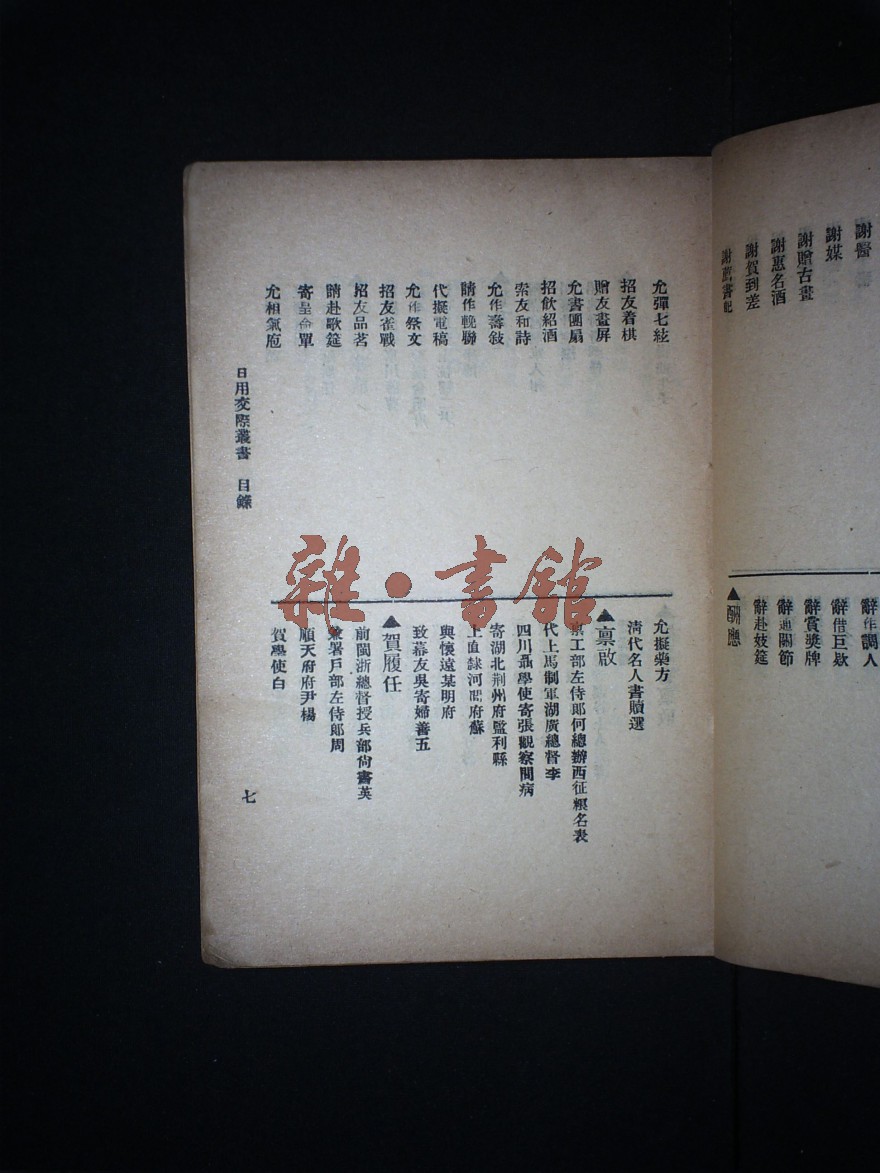 謝醫
謝媒
謝贈古畫
謝惠名酒
謝賀到差
辭作調人
辭借巨款
辭賞獎牌
辭通關節
辭赴妓筵
▲酬應
允彈七絃
招友着棋
贈友畫屏
允書團扇
招飲紹酒
索友和詩
允作壽敍
請作輓聯
代擬電稿
允作祭文
招友雀戰
招友品茗
請赴歌筵
寄星命單
允相氣色
允擬藥方
清代名人書牘選
▲禀啟
工部左侍郎何總辦西征糧名表
代上馬制軍湖廣總督李
四川聶學使寄張觀察問病
寄湖北荆州府監利縣
上直隸河間府蘇
與懷遠某明府
致幕友吳寄嫦善五
▲賀履任
前閩浙總督授兵部尙書英
兼署戶部左侍郎周
順天府府尹楊
賀學使白
日用交際叢書 目錄
七
雜·書館